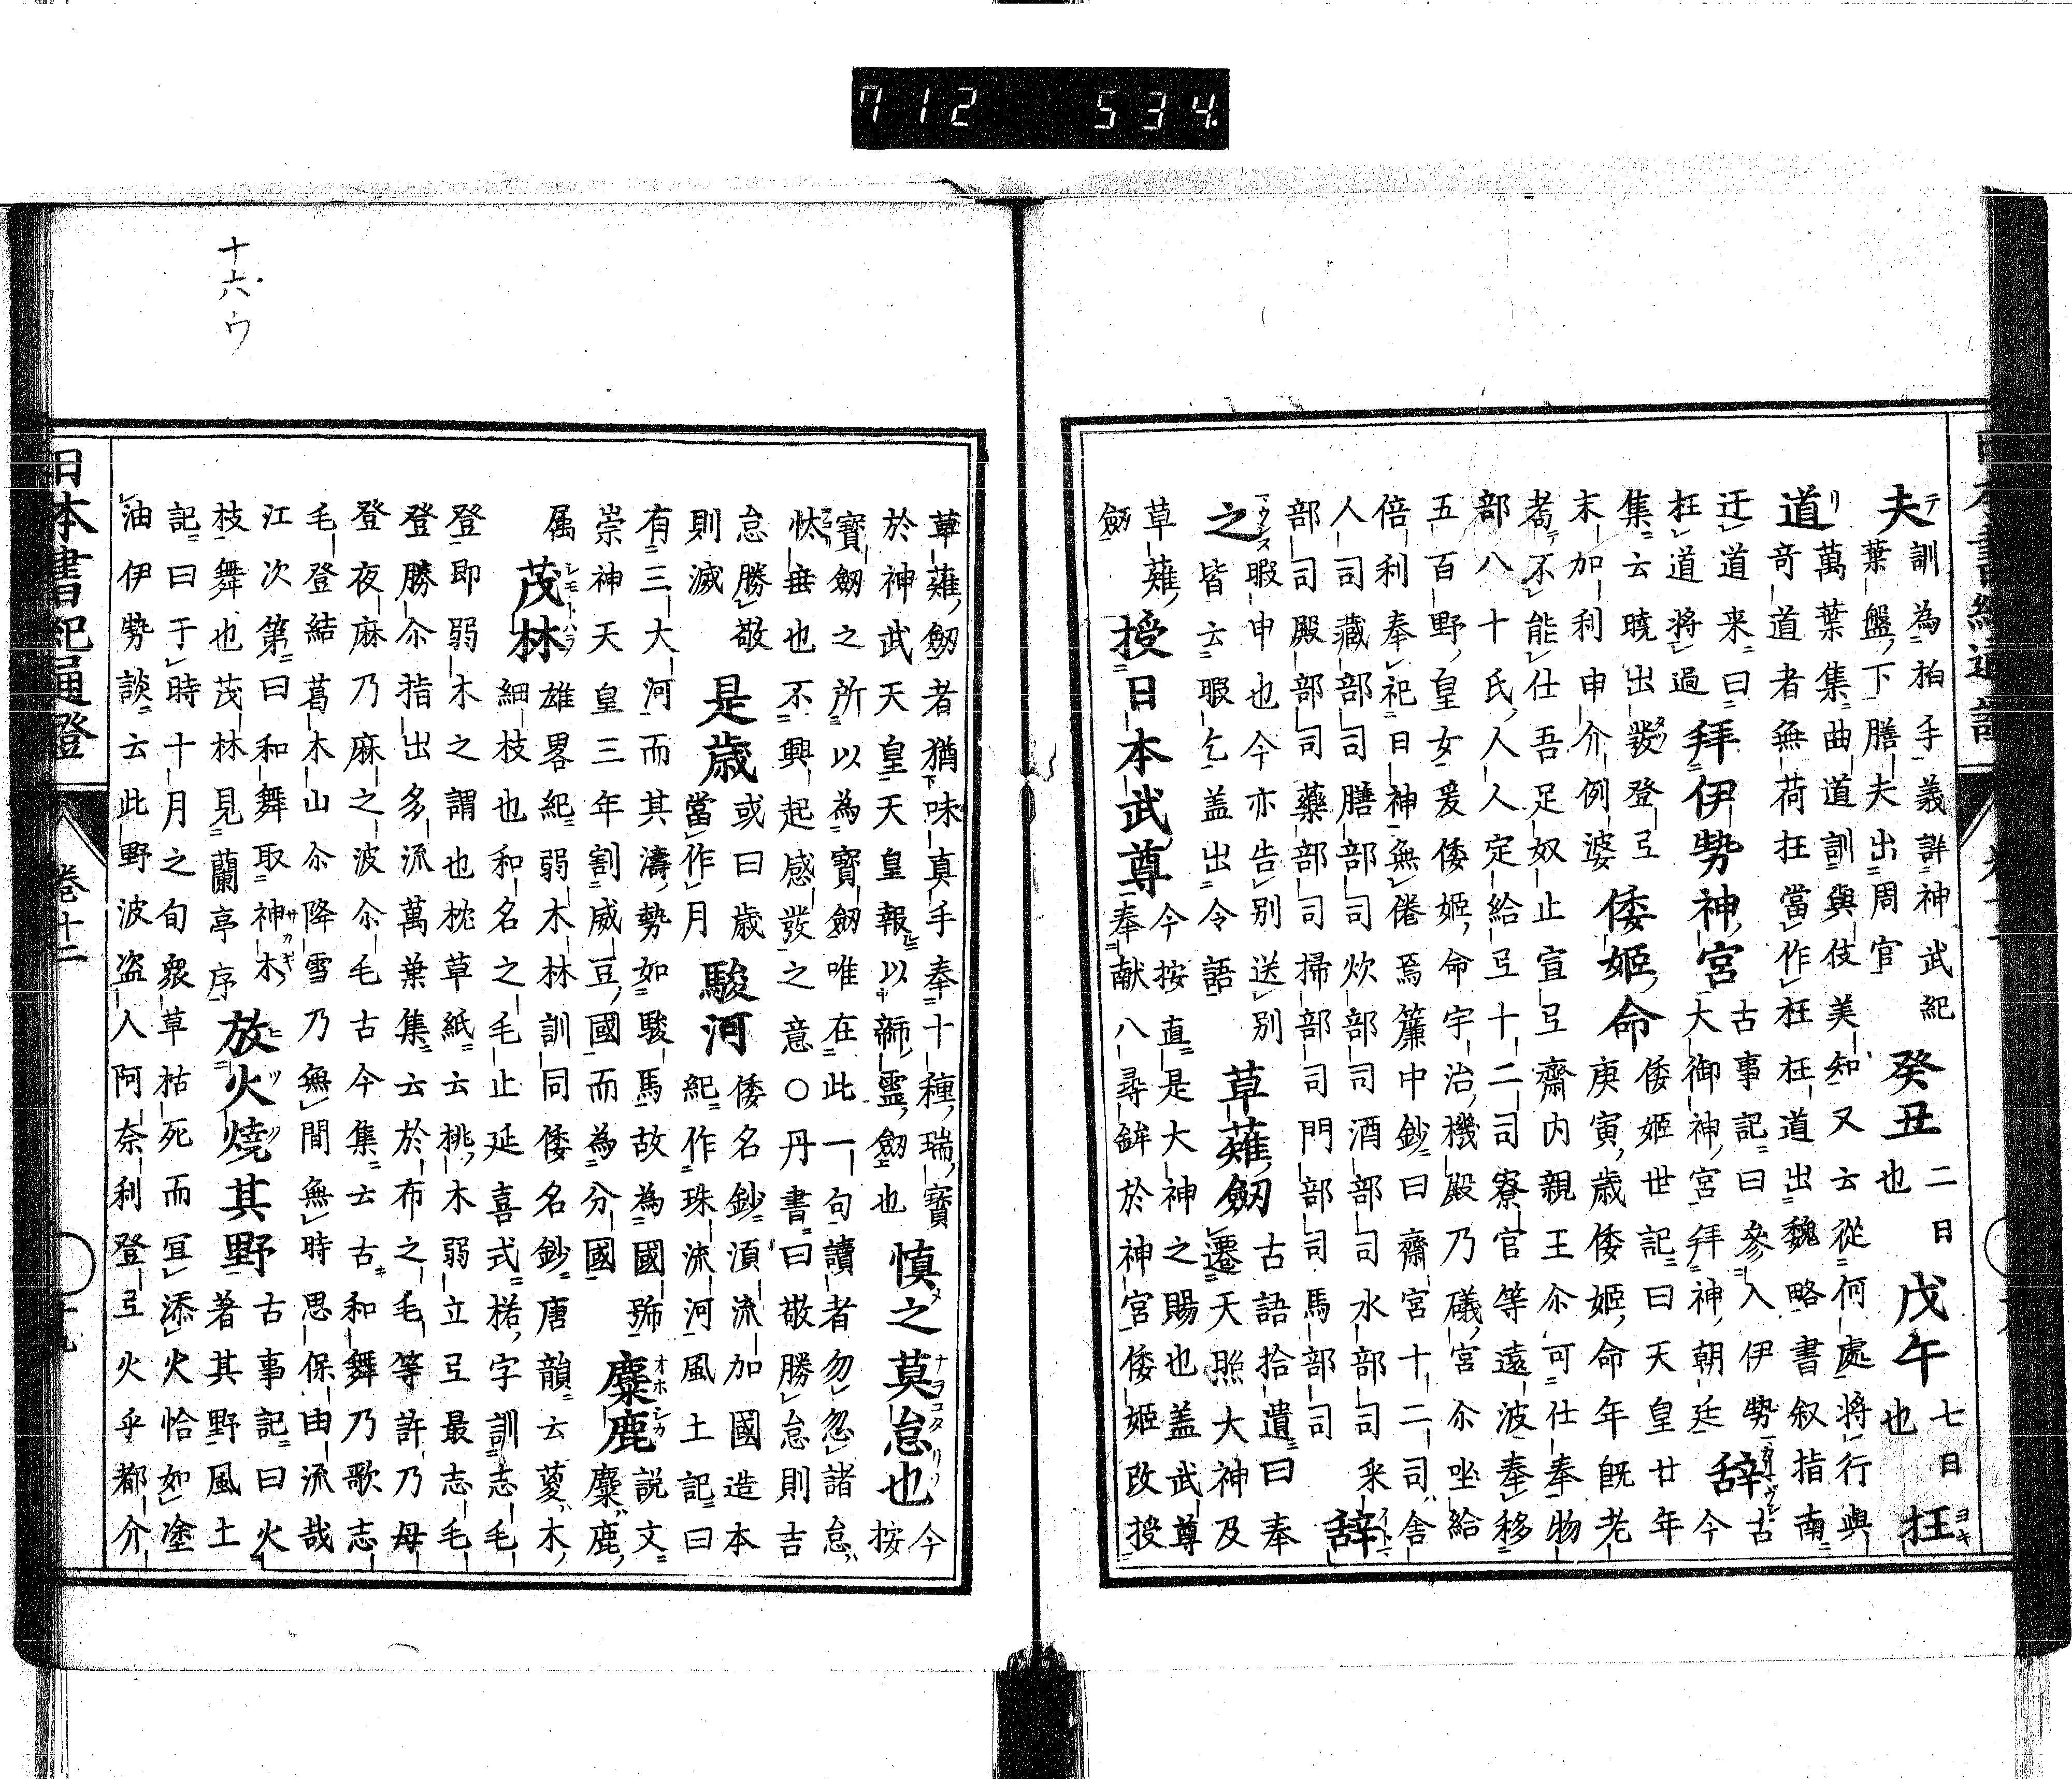 712 534
夫訓為拍手義詳神武紀 癸丑二日也 戊午七日也 枉
葉盤下膳夫出周官
道萬葉集曲道訓與伎美知又云從何處將行與
奇道者無荷枉當作枉枉道出魏略書叙指南
迂道来曰 拜伊勢神宮 古事記曰參入伊勢 辞古
枉道將過 大御神宮拜神朝廷 今
集云曉出發登弖 倭姬命 倭姬世記曰天皇廿年
末加利申介例婆 庚寅歳倭姬命年既老
耆不能仕吾足奴止宣弖齋内親王尒可仕奉物
部八十氏人人定給弖十二司寮官等遠波奉移
五百野皇女爰倭姬命宇治機殿乃礒宮尒坐給
倍利奉祀日神無倦焉簾中鈔曰齋宮十二司舎
人司藏部司膳部司炊部司酒部司水部司采 辞
部司殿部司藥部司掃部司門部司馬部司
之暇申也今亦告別送別 草薙劔 古語拾遺曰奉
皆云暇乞盖出令語 遷天照大神及
草薙 授日本武尊 今按直是大神之賜也盖武尊
劔 奉献八尋鉾於神宮倭姬改授
十六ウ
草薙劔者猶味真手奉十種瑞寶 慎之莫怠也 今
於神武天皇天皇報以韴靈劔也 按
寳劔之所以為寳劔唯在此一句讀者勿忽諸怠
怢垂也不興起感發之意○丹書曰敬勝怠則吉
怠勝敬 是歳 或曰歳 駿河 倭名鈔湏流加國造本
則滅 當作月 紀作珠流河風土記曰
有三大河而其濤勢如駿馬故為國號 麋鹿 説文
崇神天皇三年割威豆國而為分國 麋鹿
属 茂林 雄畧紀弱木林訓同倭名鈔唐韻云蓌木
細枝也和名之毛止延喜式楉字訓志毛
登即弱木之謂也枕草紙云桃木弱立弖最志毛
登勝尒指出多流萬葉集云於布之毛等許乃母
登夜麻乃麻之波尒毛古今集云古和舞乃歌志
毛登結葛木山尒降雪乃無間無時思保由流哉
江次第曰和舞取神木 放火燒其野 古事記曰火
枝舞也茂林見蘭亭序 著其野風土
記曰于時十月之旬衆草枯死而冝添火恰如塗
油伊勢談云此野波盗人阿奈利登弖火乎都介
日本書紀通證 卷十二